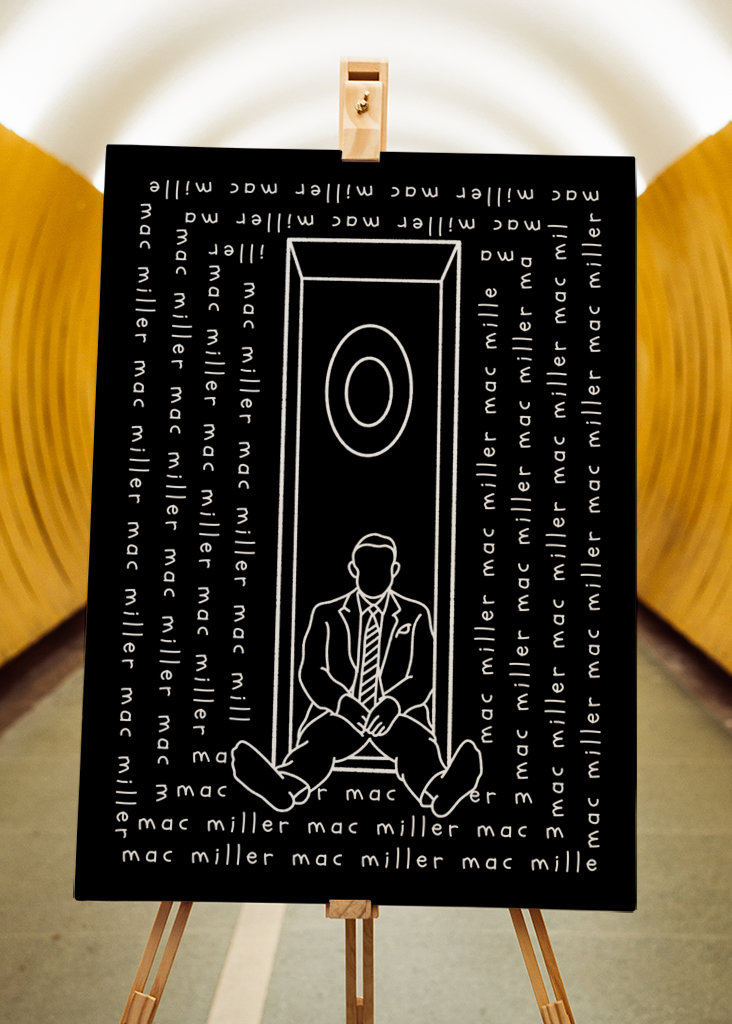 mac miller mac miller mac mille
mac miller mac miller ma
ma iller
mac miller mac miller mac miller mac miller
mac miller mac miller mac miller mac m
mac miller mac miller mac miller
mac miller mac miller mac mill
mac miller mac miller mac mille
mac miller mac miller mac miller ma
mac miller mac miller mac miller mac mil
mac miller mac miller mac miller mac miller
ma
mac r mac er m
mac miller mac miller mac m
mac miller mac miller mac mille